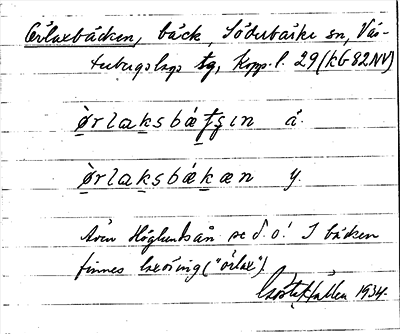 Örlaxbäcken, bäck Söderbärke sn, Väs-
terbergslags tg, Kopp. l. 29 (KG 82 NV)
ø̀rlaksbätʃɩn ä.
ø̀rlaksbäkæn y.
Även Höglundsån se d. o! I bäcken
finnes laxöring ("örlax").
Gösta Hallén 1934.